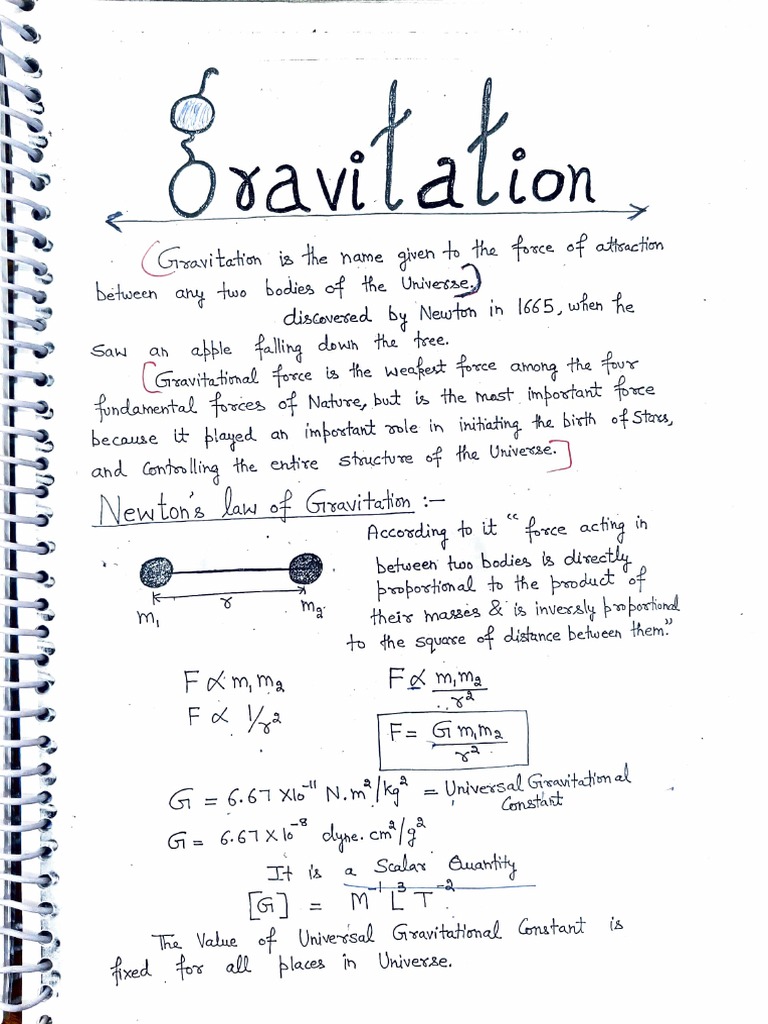 Gravitation
(Gravitation is the name given to the force of attraction
between any two bodies of the Universe.)
discovered by Newton in 1665, when he
saw an apple falling down the tree.
[Gravitational force is the weakest force among the four
fundamental forces of Nature, but is the most important force
because it played an important role in initiating the birth of Stars,
and controlling the entire structure of the Universe.]
Newton's law of Gravitation :-
According to it "force acting in
between two bodies is directly
proportional to the product of
their masses & is inversly proportional
to the square of distance between them."
m₁ r m₂
F ∝ m₁ m₂
F ∝ 1/r²
F ∝ m₁m₂/r²
F = G m₁m₂/r²
G = 6.67 X10⁻¹¹ N.m²/kg² = Universal Gravitational
Constant
G = 6.67 X 10⁻⁸ dyne.cm²/g²
It is a Scalar Quantity
[G] = M⁻¹ L³ T⁻²
The Value of Universal Gravitational Constant is
fixed for all places in Universe.